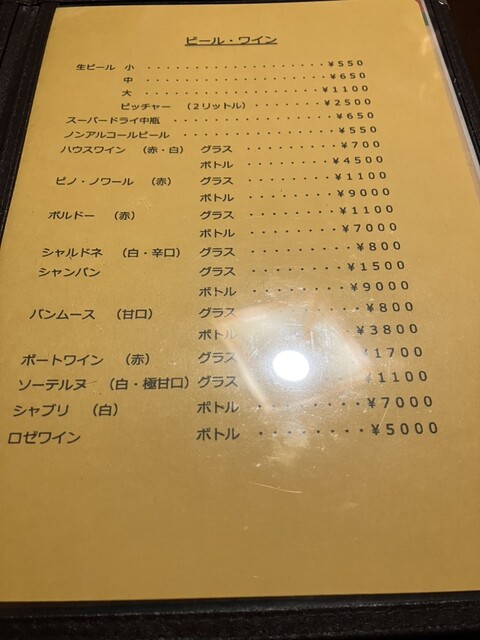 ビール・ワイン
生ビール 小 ・・・・・・・・・・・・・・・・・・・・ ¥550
中 ・・・・・・・・・・・・・・・・・・・ ¥650
大 ・・・・・・・・・・・・・・・・・・・ ¥1100
ピッチャー (2リットル) ・・・・・・・ ¥2500
スーパードライ中瓶 ・・・・・・・・・・・・・・・・ ¥650
ノンアルコールビール ・・・・・・・・・・・・・・・ ¥550
ハウスワイン (赤・白) グラス ・・・・・・・・・ ¥700
ボトル ・・・・・・・・ ¥4500
ピノ・ノワール (赤) グラス ・・・・・・・・ ¥1100
ボトル ・・・・・・・・ ¥9000
ボルドー (赤) グラス ・・・・・・・・ ¥1100
ボトル ・・・・・・・・ ¥7000
シャルドネ (白・辛口) グラス ・・・・・・・・ ¥800
シャンパン グラス ・・・・・・・・ ¥1500
ボトル ・・・・・・・・ ¥9000
バンムース (甘口) グラス ・・・・・・・・ ¥800
ボトル ・・・・・・・・ ¥3800
ポートワイン (赤) グラス ・・・・・・・・ ¥1700
ソーテルヌ (白・極甘口) グラス ・・・・・・・・ ¥1100
シャブリ (白) ボトル ・・・・・・・・ ¥7000
ロゼワイン ボトル ・・・・・・・・ ¥5000